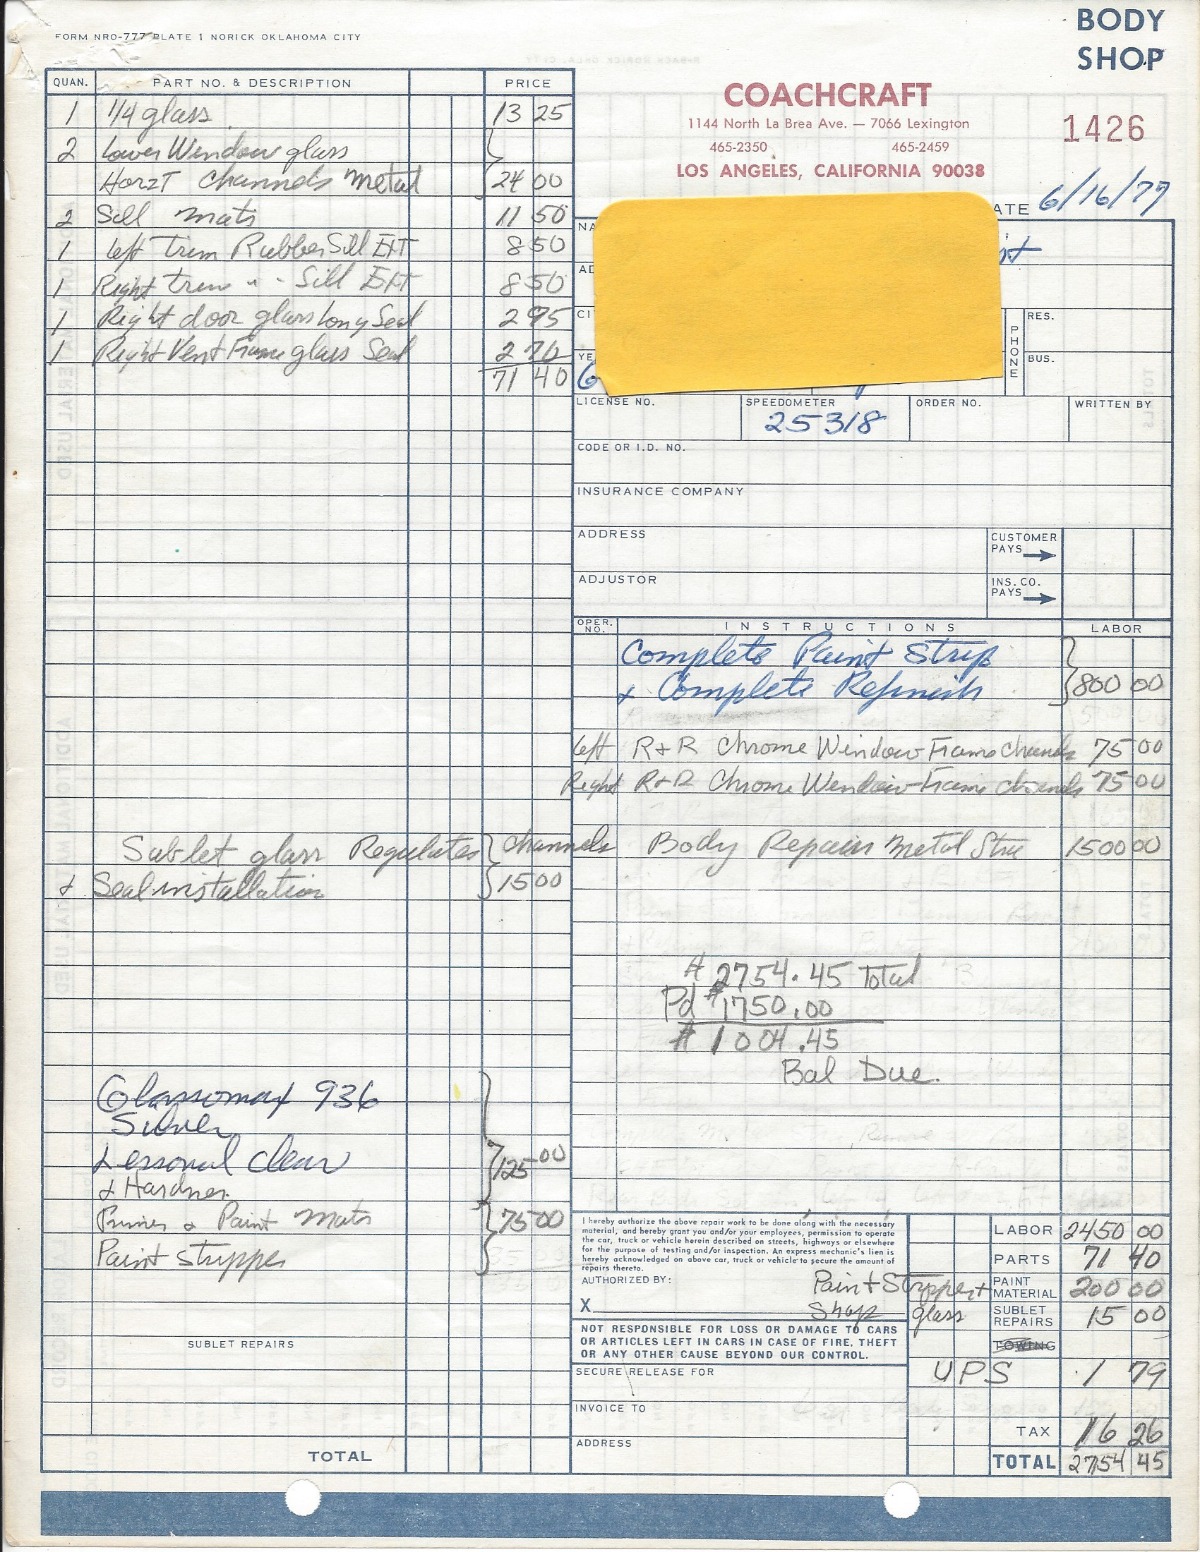 BODY
SHOP
FORM NRO-777 PLATE 1 NORICK OKLAHOMA CITY
QUAN. PART NO. & DESCRIPTION PRICE
1 1/4 glass 13 25
2 Lower Window glass
Horzt channels metal 24 00
2 Sill mats 11 50
1 left trim Rubber Sill EHT 8 50
1 Right trim " " Sill EHT 8 50
1 Right door glass long Seal 2 95
1 Right Vent Frame glass Seal 2 70
71 40
COACHCRAFT
1144 North La Brea Ave. — 7066 Lexington
465-2350 465-2459
LOS ANGELES, CALIFORNIA 90038
1426
ATE 6/16/77
NA
AD
CI
YE
6
PHONE
RES.
BUS.
LICENSE NO. SPEEDOMETER ORDER NO. WRITTEN BY
25318
CODE OR I.D. NO.
INSURANCE COMPANY
ADDRESS CUSTOMER PAYS
ADJUSTOR INS. CO. PAYS
OPER. NO. INSTRUCTIONS LABOR
Complete Paint Strip
& Complete Refinish 800 00
left R+R Chrome Window Frame channels 75 00
Right R+R Chrome Window Frame channels 75 00
Sublet glass Regulates channels
& Seal installation 15 00
Body Repairs Metal 1500 00
$2754.45 Total
Pd $1750.00
$1004.45
Bal Due.
Glassomax 936
Silver
Lessonal Clear
& Hardner 125 00
Primer & Paint Mats 75 00
Paint Stripper
SUBLET REPAIRS
TOTAL
I hereby authorize the above repair work to be done along with the necessary
material, and hereby grant you and/or your employees, permission to operate
the car, truck or vehicle herein described on streets, highways or elsewhere
for the purpose of testing and/or inspection. An express mechanic's lien is
hereby acknowledged on above car, truck or vehicle to secure the amount of
repairs thereto.
AUTHORIZED BY:
X
NOT RESPONSIBLE FOR LOSS OR DAMAGE TO CARS
OR ARTICLES LEFT IN CARS IN CASE OF FIRE, THEFT
OR ANY OTHER CAUSE BEYOND OUR CONTROL.
SECURE RELEASE FOR
INVOICE TO
ADDRESS
LABOR 2450 00
PARTS 71 40
Paint Stripper + PAINT MATERIAL 200 00
Shop glass SUBLET REPAIRS 15 00
TOWING
UPS 1 79
TAX 16 26
TOTAL 2754 45